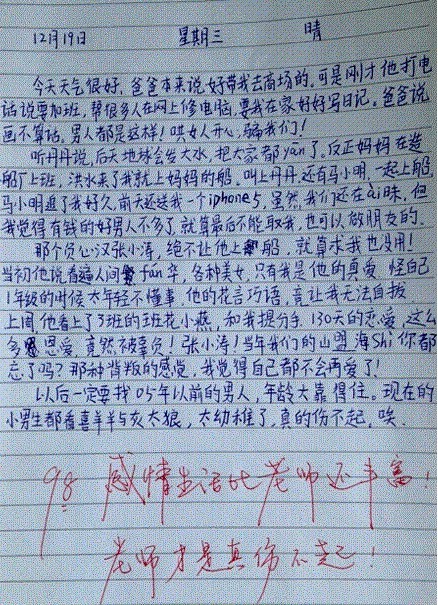 12月19日 星期三 晴
今天天气很好，爸爸本来说好带我去商场的。可是刚才他打电
话说要加班，帮很多人在网上修电脑，要我在家好好写日记。爸爸说
画不算话。男人都是这样！哄女人开心，骗我们！
听丹丹说，后天地球会发大水，把大家都yān了。反正妈妈在造
船厂上班，洪水来了我就上妈妈的船。叫上丹丹还有马小明，一起上船。
马小明追了我好久，前天还送我一个iphone5，虽然我们还在ài昧，但
我觉得有钱的好男人不多了，就算最后不能取我，也可以做朋友的。
那个负心汉张小涛，绝不让他上船，就算求我也没用！
当初他说看遍人间fán华，各种美女，只有我是他的真爱，怪自己
1年级的时候太年轻不懂事，他的花言巧语，竟让我无法自拔。
上周，他看上了3班的班花小燕，和我提分手。130天的恋爱，这么
多恩爱，竟然被辜负！张小涛！当年我们的山盟海Shì你都
忘了吗？那种背叛的感觉，我觉得自己都不会再爱了！
以后一定要找05年以前的男人，年龄大靠得住。现在的
小男生都看喜羊羊与灰太狼，太幼稚了，真的伤不起，唉。
98 感情生活比老师还丰富！
老师才是真伤不起！